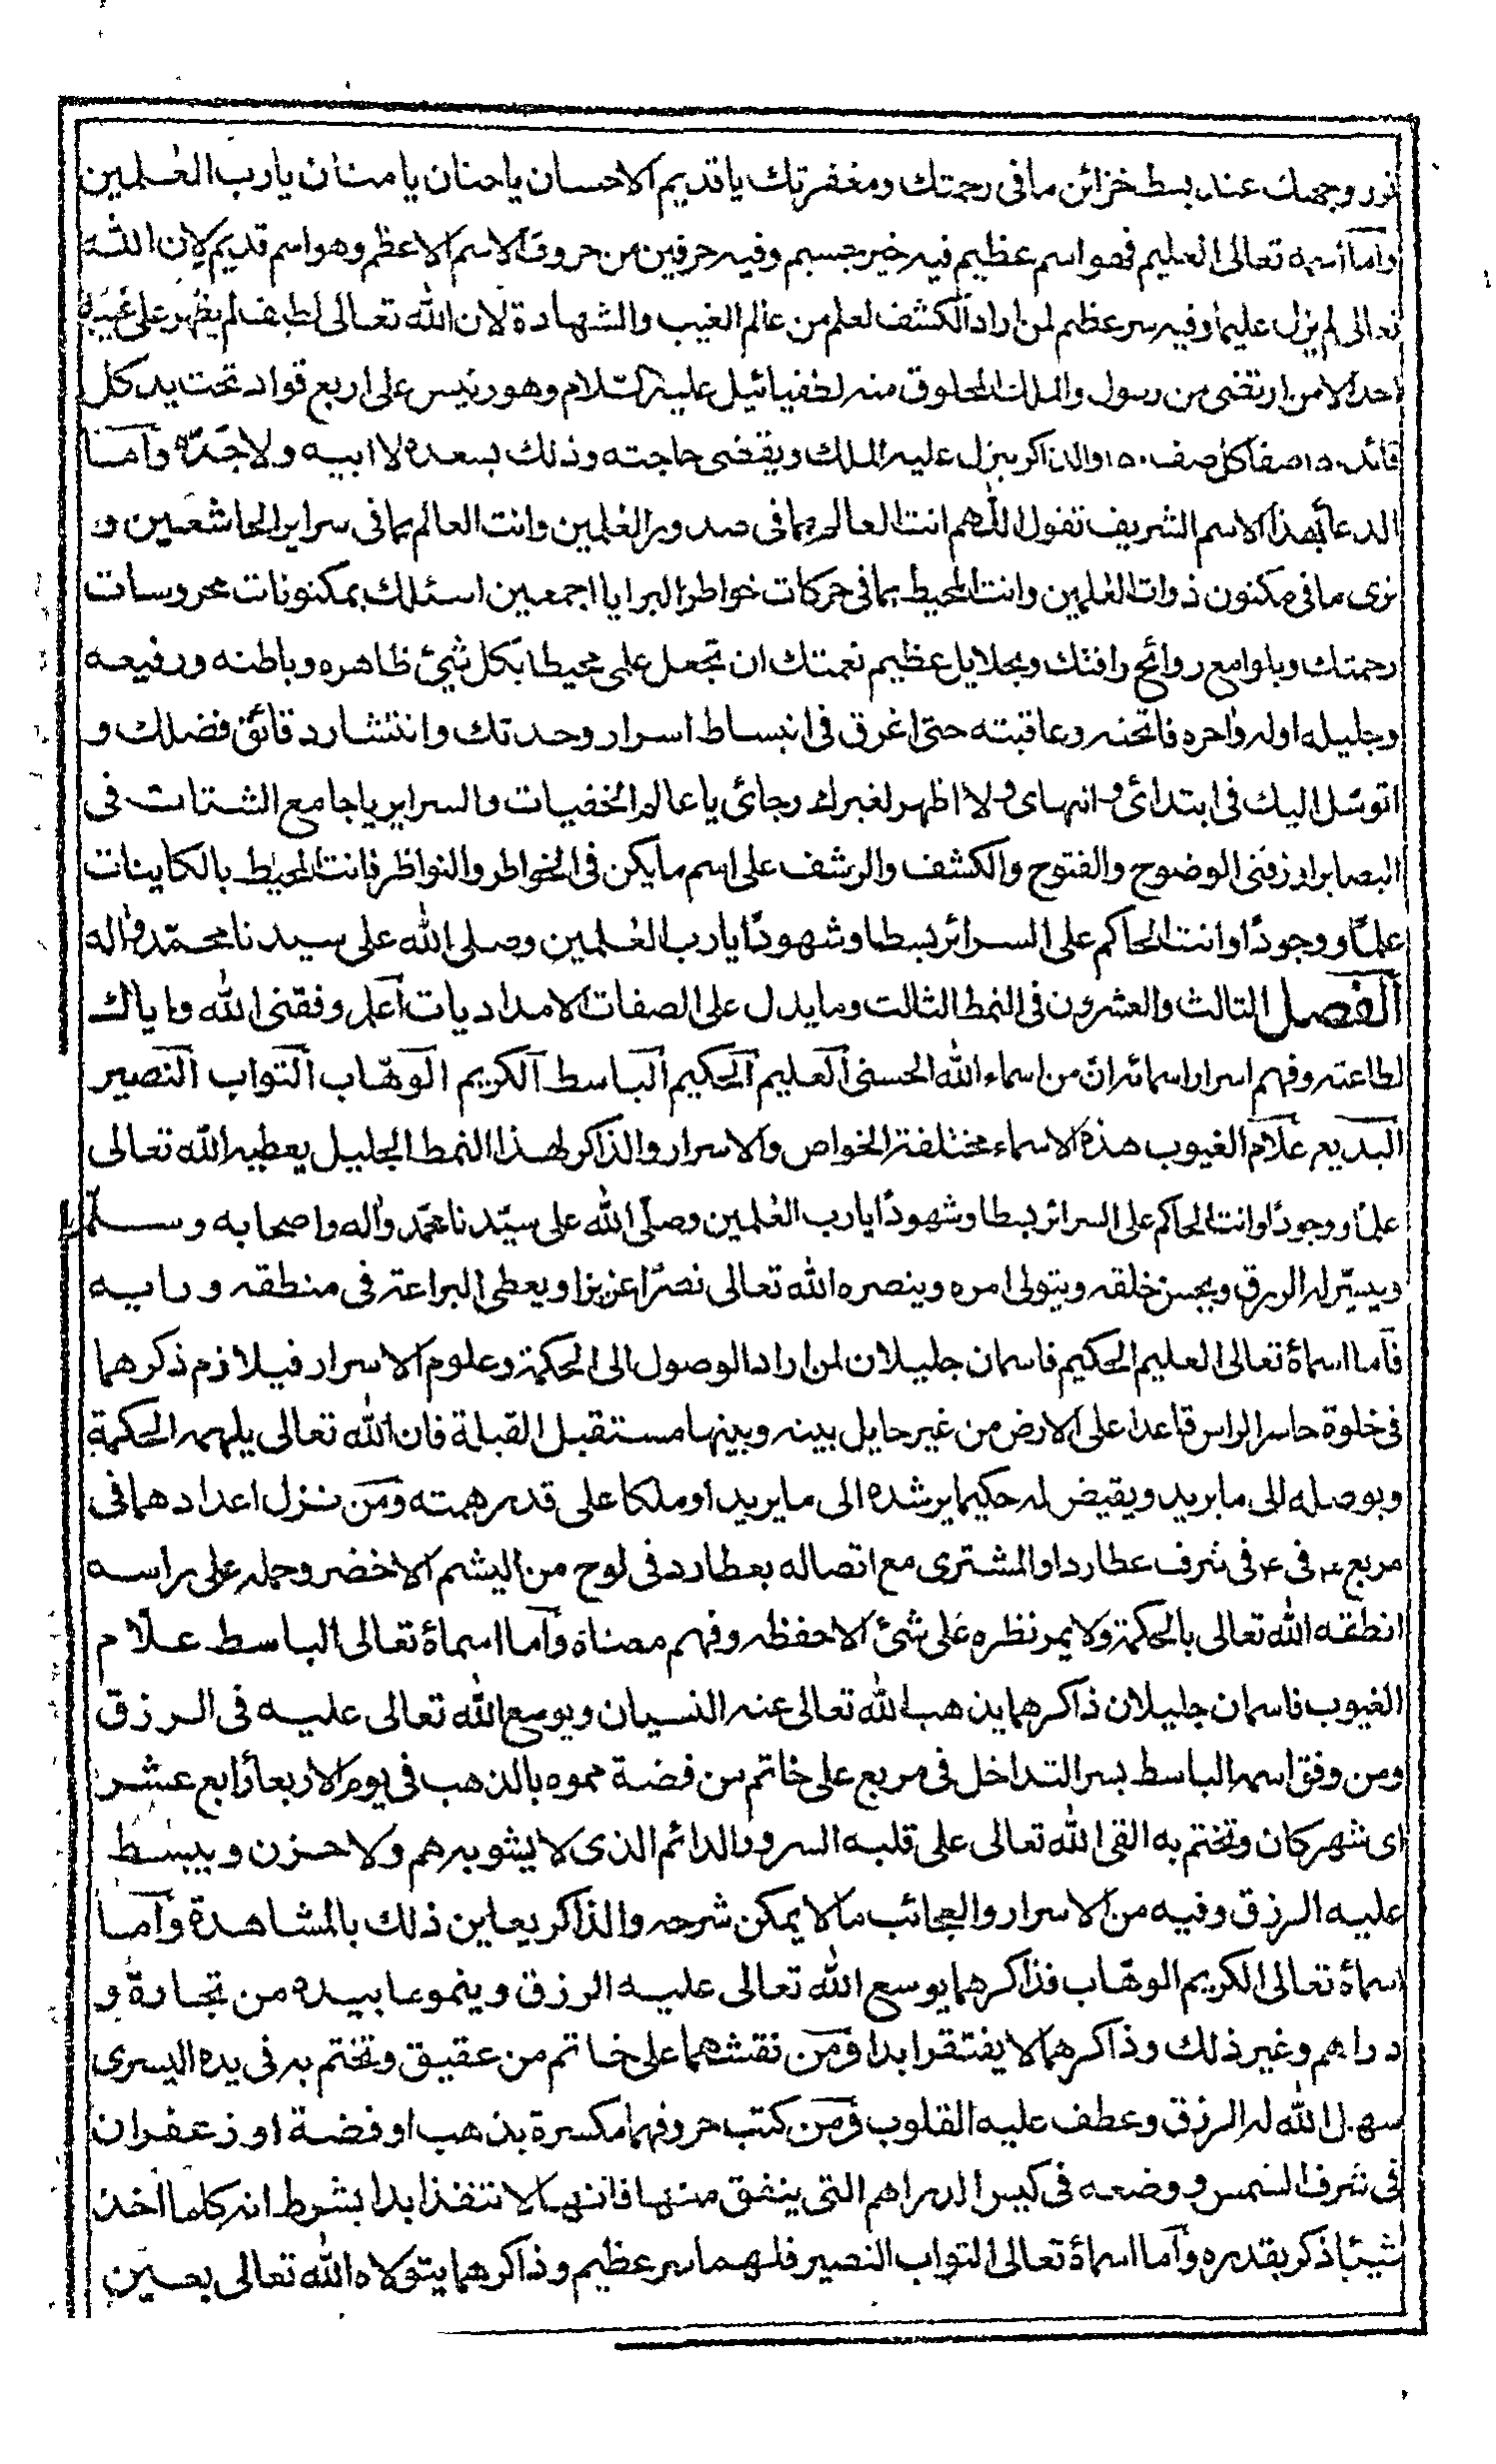 نور وجهك عند بسط خزائن ما فى رحمتك ومغفرتك يا قديم الاحسان يا حنان يا منان يا رب العٰلمين
واما اسمه تعالى العليم فهو اسم عظيم فيه خير جسيم وفيه حرفين من حروف الاسم الاعظم وهو اسم قديم لان الله
تعالى لم يزل عليما وفيه سر عظيم لمن اراد الكشف لعلم من عالم الغيب والشهادة لان الله تعالى لطيف لم يظهر على غيبه
احدا الا من ارتضى من رسول والملك المخلوق منه لطفيائيل عليه السلام وهو رئيس على اربع قواد تحت يد كل
قائد ١٥٠ صفا كل صف ١٥٠ والذاكر ينزل عليه الملك ويقضى حاجته وذلك بسعده لا ابيه ولا جدّه واما
الدعا بهذا الاسم الشريف تقول اللهم انت العالم بما فى صدور العٰلمين وانت العالم بما فى سراير الخاشعين و
ترى ما فى مكنون ذوات العٰلمين وانت المحيط بما فى حركات خواطر البرايا اجمعين اسئلك بمكنونات محروسات
رحمتك وبلوامع روائح رافتك وبجلايل عظيم نعمتك ان تجعل على محيطا بكل شئ ظاهره وباطنه ورفيعه
وجليله اوله واٰخره فاتحته وعاقبته حتى اغرق فى انبساط اسرار وحدتك وانتشار دقائق فضلك و
اتوسّل اليك فى ابتدائى وانتهاى ولا اظهر لغيرك رجائى يا عالم الخفيات والسراير يا جامع الشتات فى
البصاير ارزقنى الوضوح والفتوح والكشف والرشف على اسم ما يكن فى الخواطر والنواظر فانت المحيط بالكاينات
علمًا ووجودًا وانت الحاكم على السرائر بسطا وشهودًا يا رب العٰلمين وصلى الله على سيدنا محمّد واٰله
الفصل الثالث والعشرون فى النمط الثالث وما يدل على الصفات الامداديات اعلم وفقنى الله واياك
لطاعته وفهم اسرار اسمائه ان من اسماء الله الحسنى العليم الحكيم الباسط الكريم الوهّاب التواب النصير
البديع علام الغيوب هذه الاسماء مختلفة الخواص والاسرار والذاكر لهذا النمط الجليل يعطيه الله تعالى
علمًا ووجودًا وانت الحاكم على السرائر بسطا وشهودًا يا رب العٰلمين وصلّى الله على سيّدنا محمّد واٰله واصحابه وسلّم
وييسّر له الرزق ويحسن خلقه ويتولى امره وينصره الله تعالى نصرًا عزيزا ويعطى البراعة فى منطقه ورايه
فاما اسماه تعالى العليم الحكيم فاسمان جليلان لمن اراد الوصول الى الحكمة وعلوم الاسرار فيلازم ذكرهما
فى خلوة حاسر الراس قاعدا على الارض من غير حايل بينه وبينها مستقبل القبلة فان الله تعالى يلهمه الحكمة
ويوصله الى ما يريد ويقيض له حكيما يرشده الى ما يريد او ملكا على قدر همته ومن نزل اعدادهما فى
مربع ٤ فى ٤ فى شرف عطارد او المشترى مع اتصاله بعطارد فى لوح من اليشم الاخضر وحمله على راسه
انطقه الله تعالى بالحكمة ولا يمر نظره على شئ الا حفظه وفهم معناه واما اسماه تعالى الباسط علّام
الغيوب فاسمان جليلان ذاكرهما يذهب الله تعالى عنه النسيان ويوسع الله تعالى عليه فى الرزق
ومن وفق اسمه الباسط بسر التداخل فى مربع على خاتم من فضة مموه بالذهب فى يوم الاربعا رابع عشر
اى شهر كان وتختم به القى الله تعالى على قلبه السرور الدائم الذى لا يشوبه هم ولا حزن ويبسط
عليه الرزق وفيه من الاسرار والعجائب ما لا يمكن شرحه والذاكر يعاين ذلك بالمشاهدة واما
اسماه تعالى الكريم الوهّاب فذاكرهما يوسع الله تعالى عليه الرزق وينمو ما بيده من تجارة و
دراهم وغير ذلك وذاكرهما لا يفتقر ابدا ومن نقشهما على خاتم من عقيق وتختم به فى يده اليسرى
سهل الله له الرزق وعطف عليه القلوب ومن كتب حروفهما مكسرة بذهب او فضة او زعفران
فى شرف الشمس ووضعه فى كيس الدراهم التى ينفق منها فانها لا تنفذ ابدا بشرط انه كلما اخذ
شيئا ذكر بقدره واما اسماه تعالى التواب النصير فلهما سر عظيم وذاكرهما يتولاه الله تعالى بعين